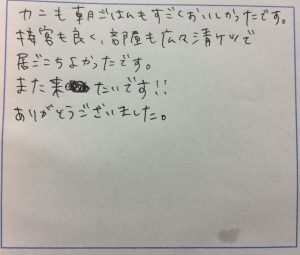 カニも朝ごはんもすごくおいしかったです。
接客も良く、部屋も広々清ケツで
居ごこちよかったです。
また来たいです!!
ありがとうございました。